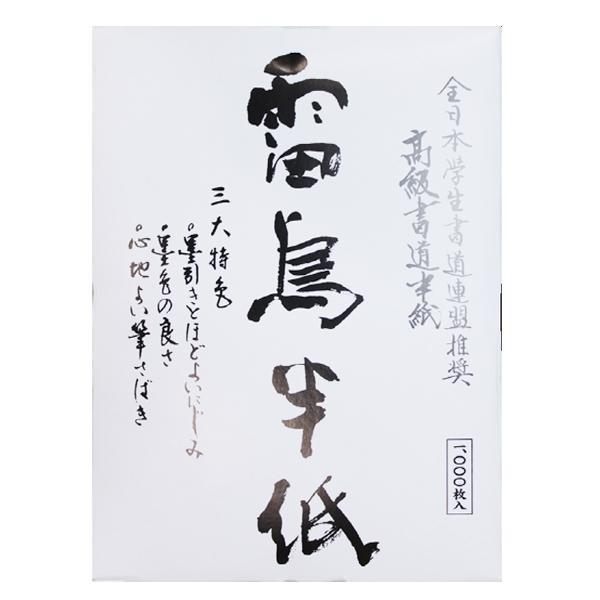 全日本学生書道連盟推奨
高級書道半紙
一、〇〇〇枚入
雷鳥半紙
三大特色
○墨引きとほどよいにじみ
○墨色の良さ
○心地よい筆さばき